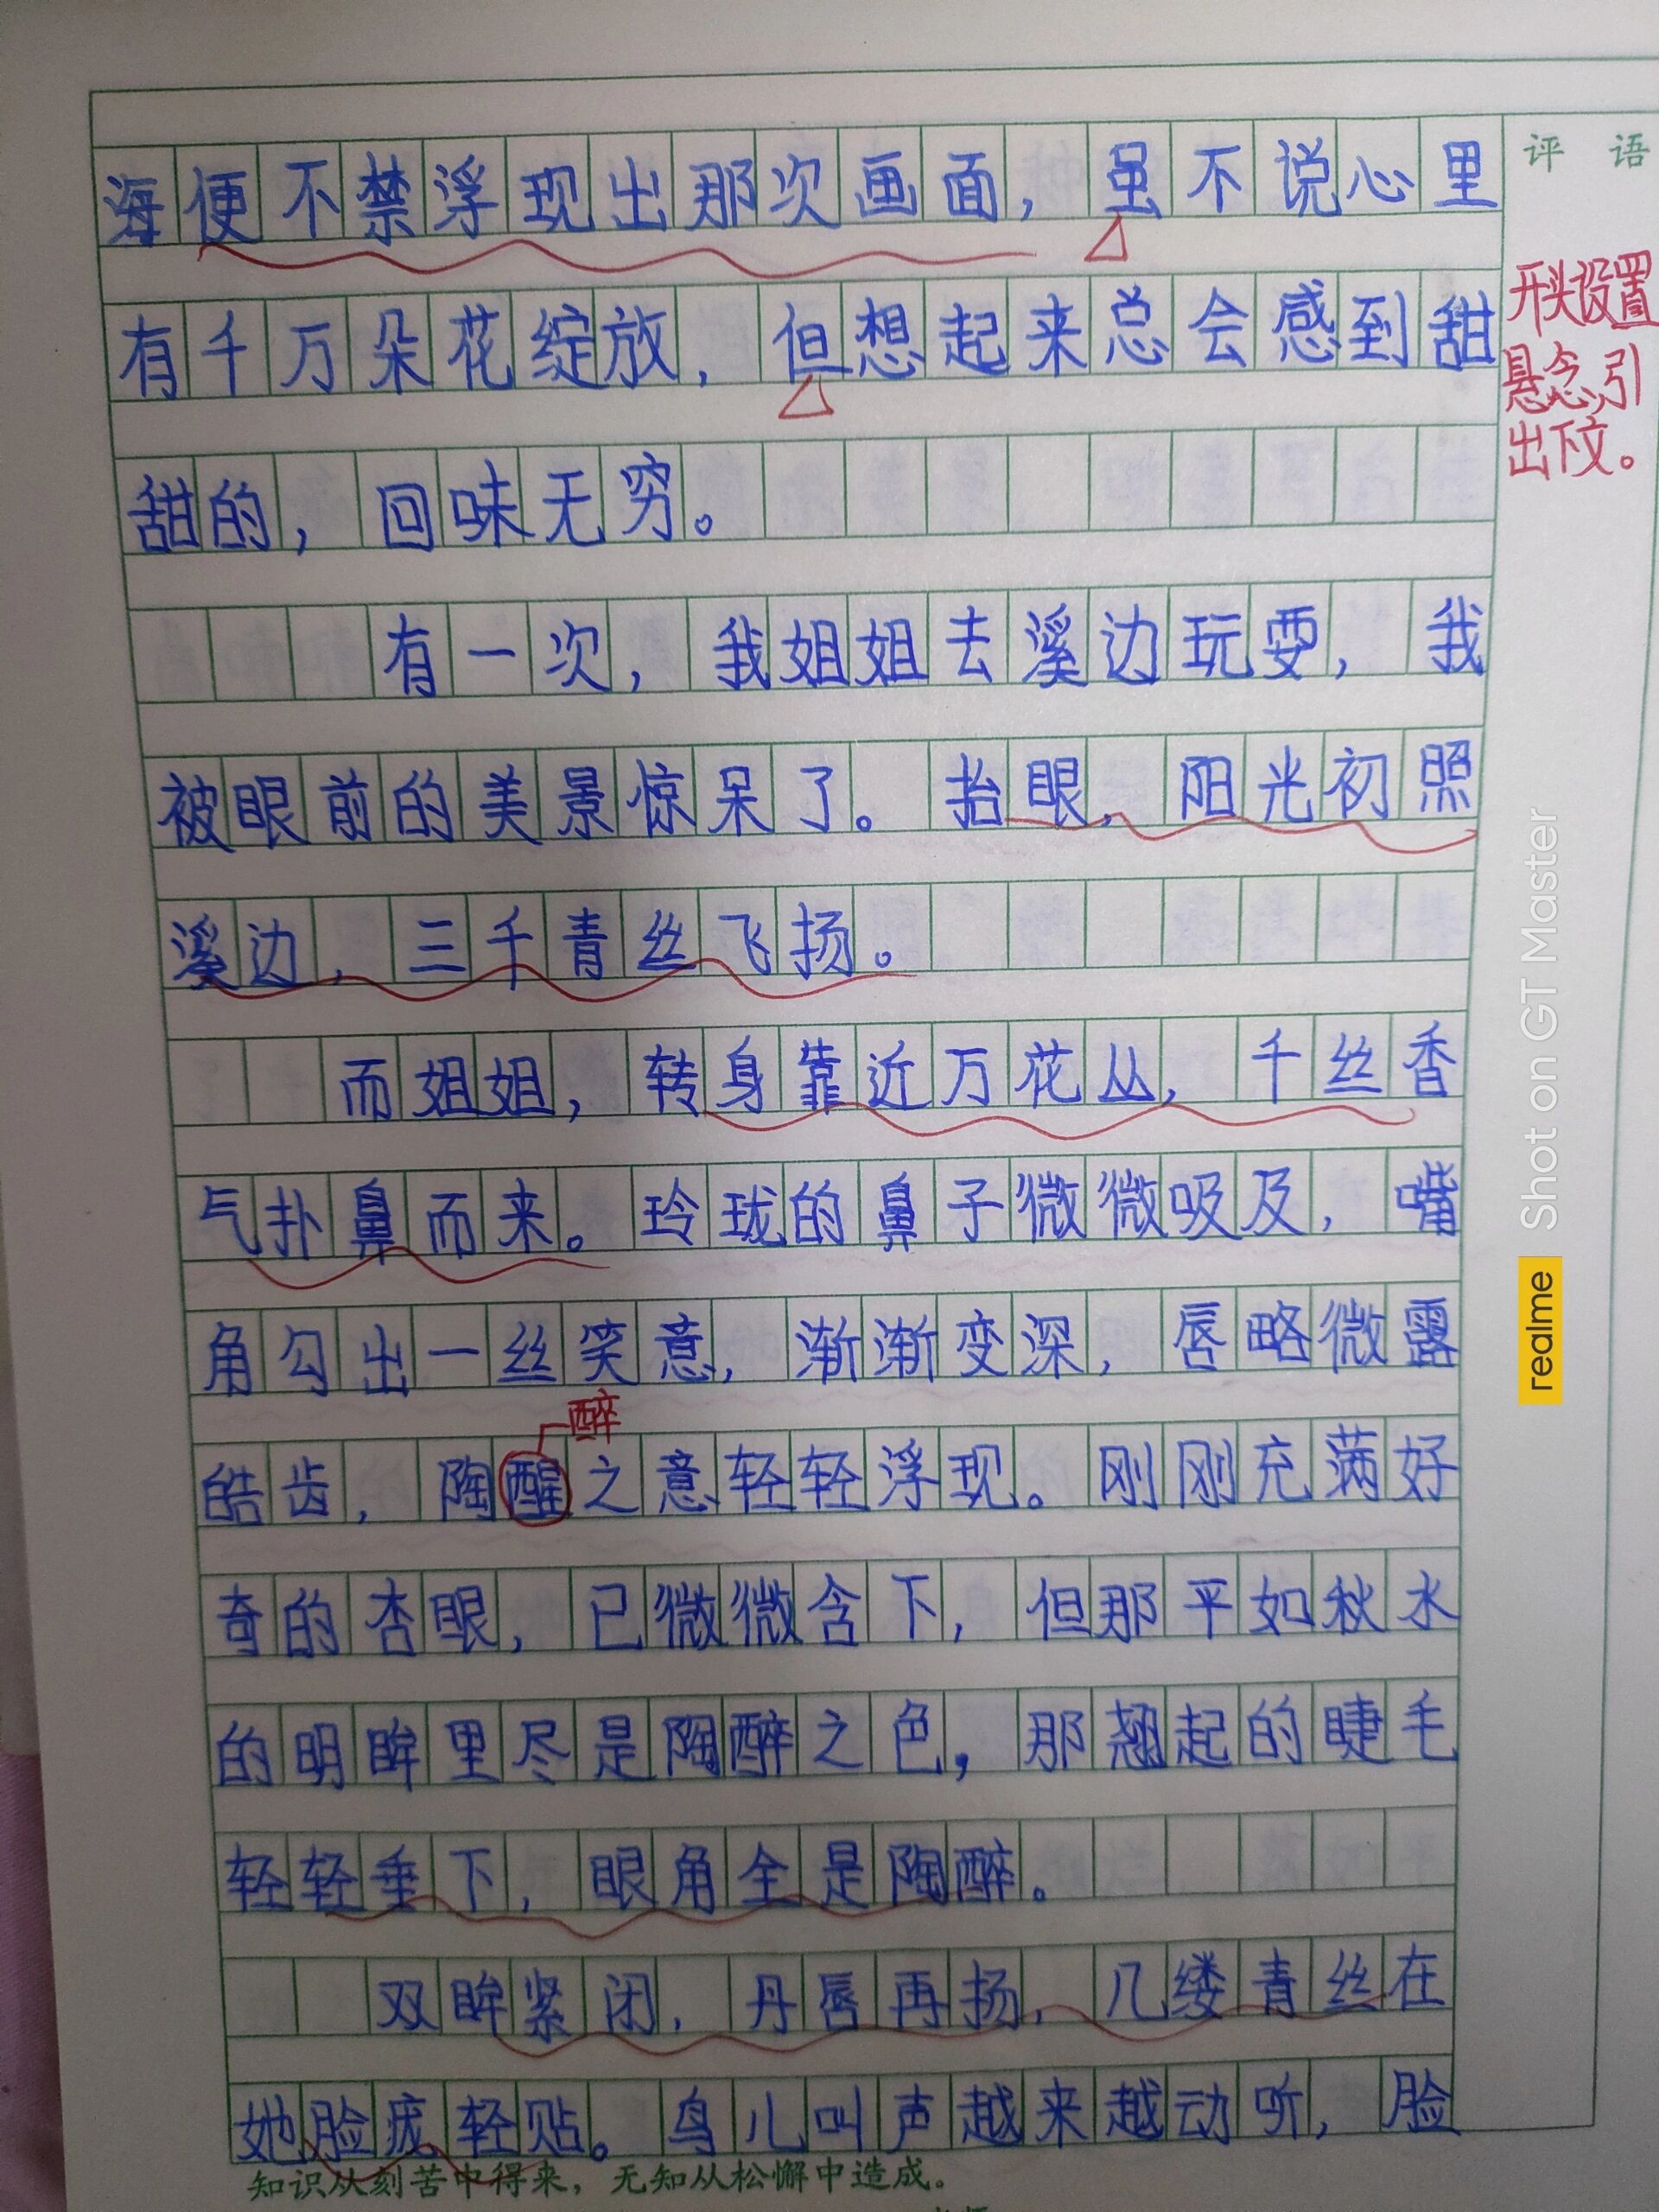 海便不禁浮现出那次画面，虽不说心里
有千万朵花绽放，但想起来总会感到甜
甜的，回味无穷。
有一次，我姐姐去溪边玩耍，我
被眼前的美景惊呆了。抬眼，阳光初照
溪边，三千青丝飞扬。
而姐姐，转身靠近万花丛，千丝香
气扑鼻而来。玲珑的鼻子微微吸及，嘴
角勾出一丝笑意，渐渐变深，唇略微露
醉
皓齿，陶醒之意轻轻浮现。刚刚充满好
奇的杏眼，已微微含下，但那平如秋水
的明眸里尽是陶醉之色，那翘起的睫毛
轻轻垂下，眼角全是陶醉。
双眸紧闭，丹唇再扬，几缕青丝在
她脸庞轻贴。鸟儿叫声越来越动听，脸
知识从刻苦中得来，无知从松懈中造成。
评 语
开头设置
悬念，引
出下文。
realme Shot on GT Master